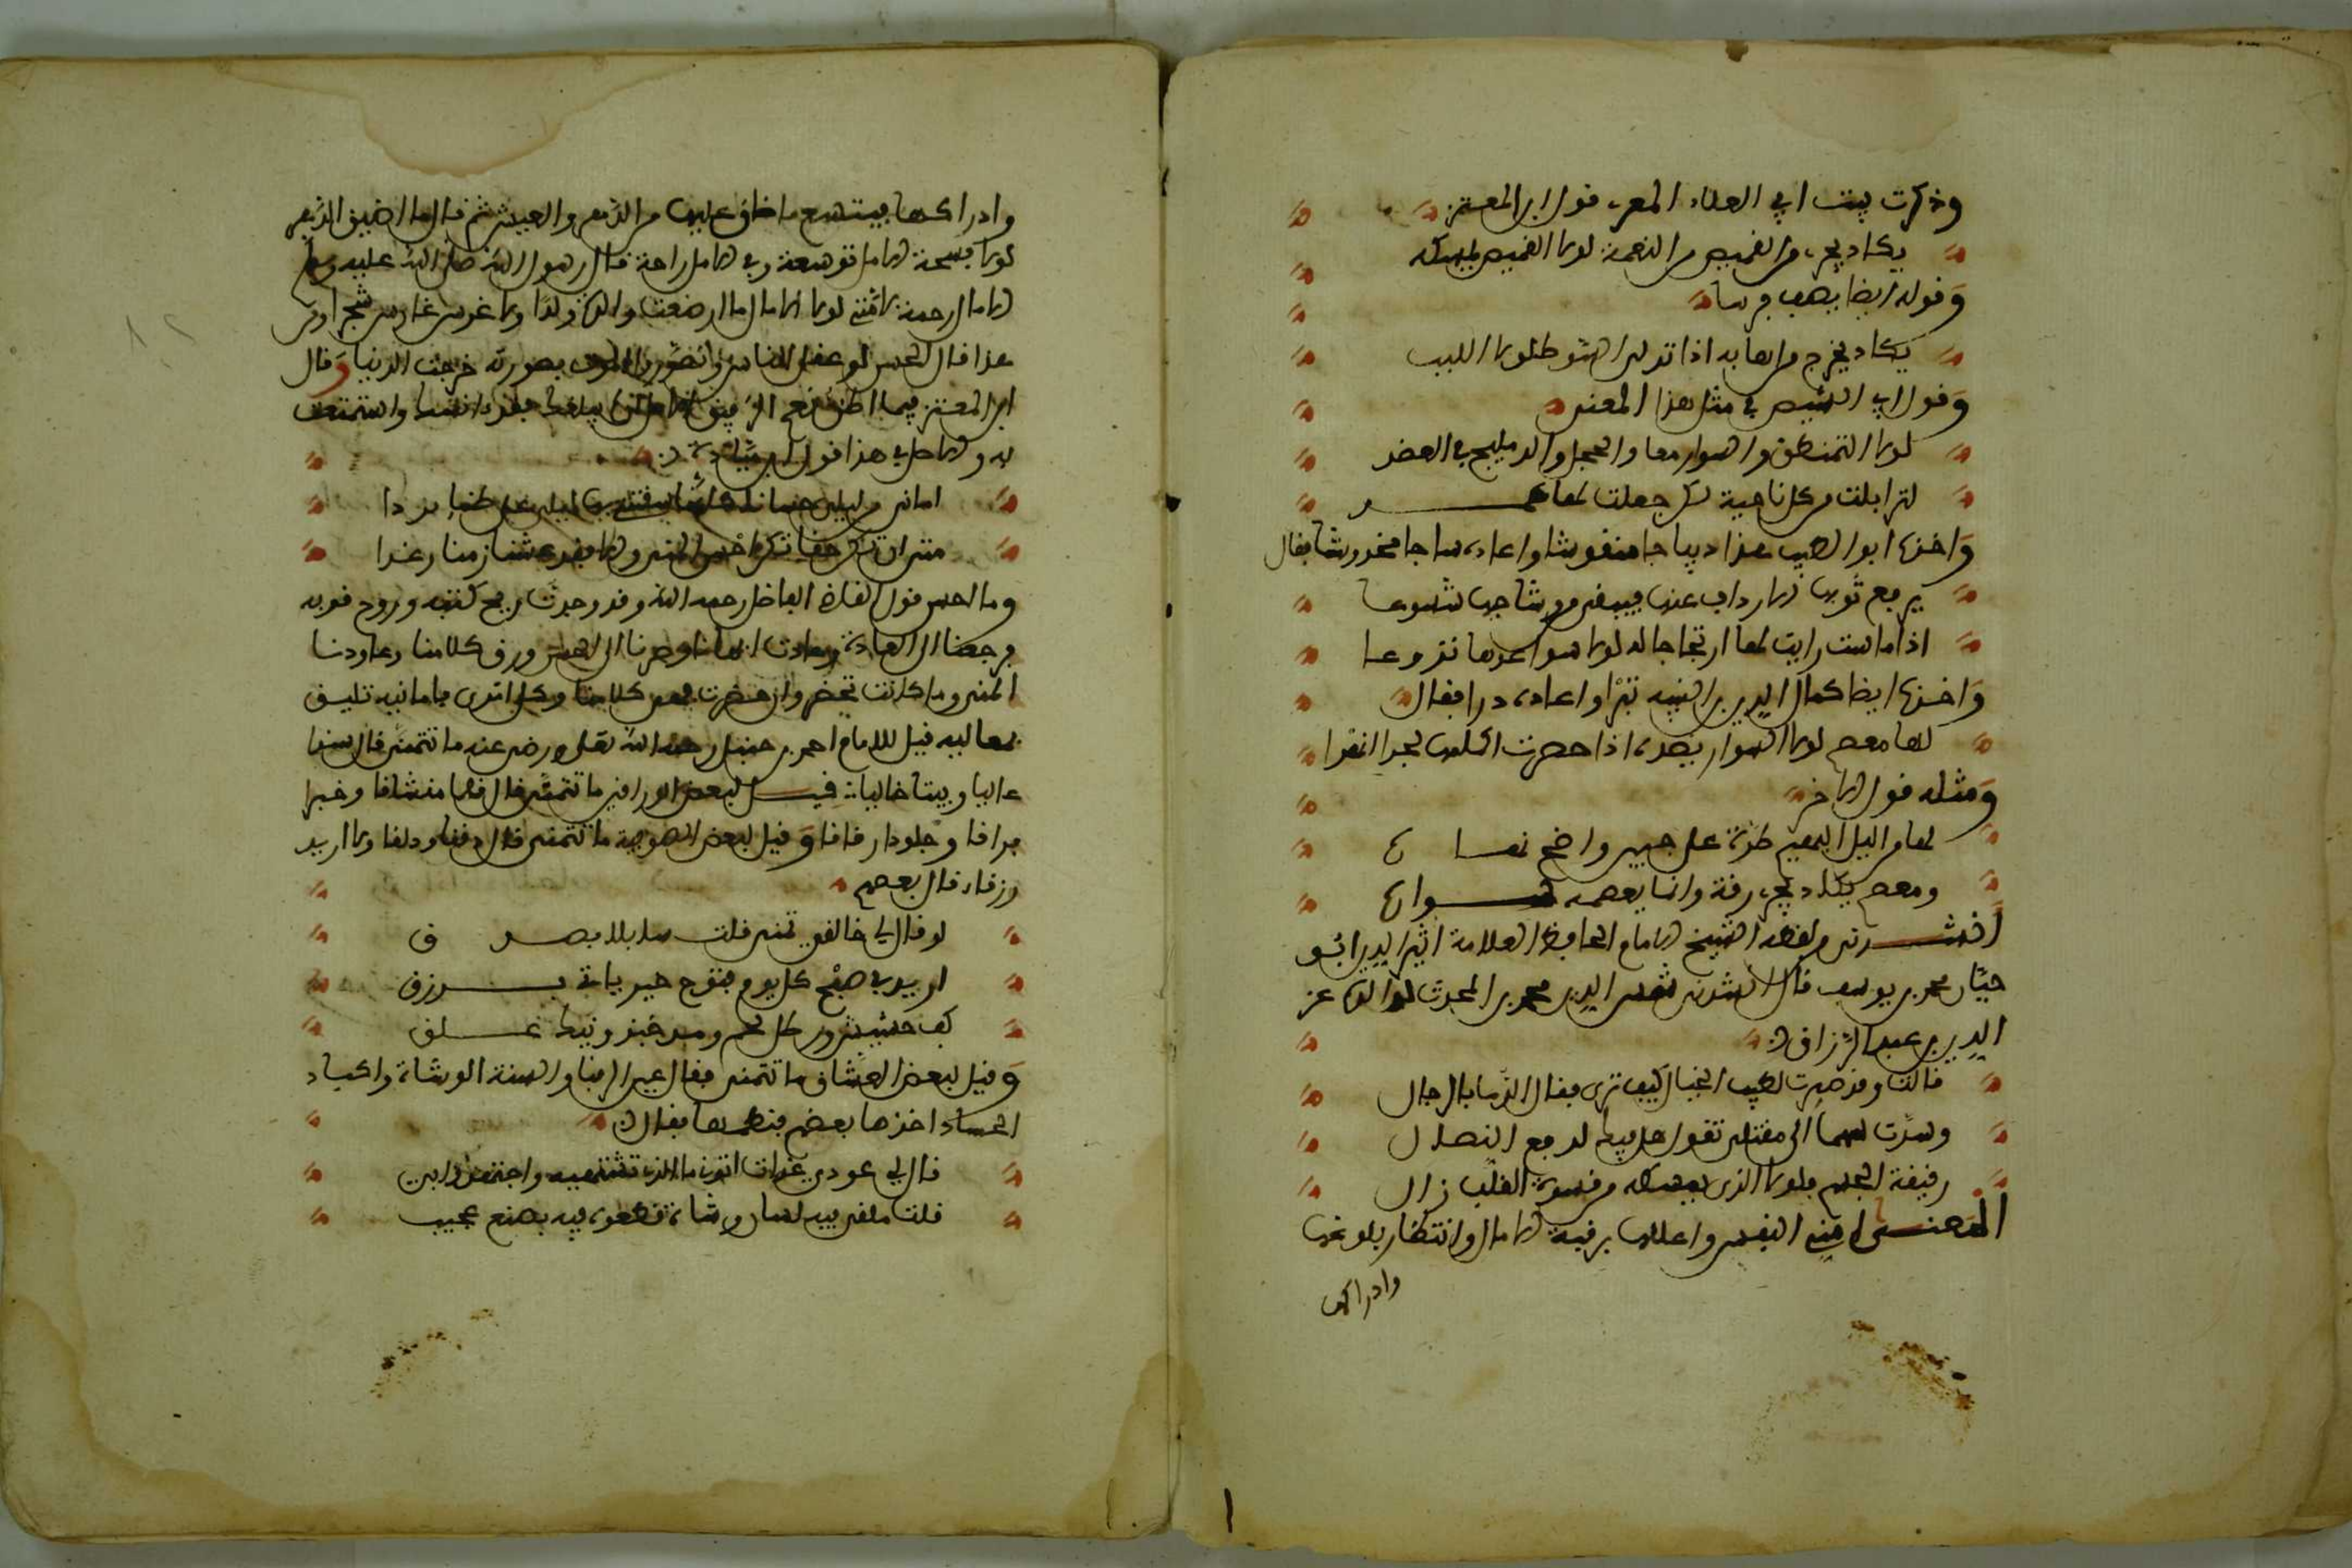 وذكرت ببيت ابي العلاء المعري قول ابن المعتز
يكاد يجري من القميص من النعمة لولا القميص يمسكه
وقوله ايضا يصف فرسا
يكاد يخرج من اهابه اذا تدلى السوط لولا اللبب
وقول ابي الشيص في مثل هذا المعنى
لولا التمنطق والسوار معا والحجل والدمليج في العضد
لتزايلت من كل ناحية لكن جعلت لها على
واخذه ابو الطيب هذا ديباجا منقوشا واعاده ساجا مخدوشا فقال
يرفع ثوبها الارداف عنها فيبقى من وشاحيها شسوعا
اذا ماست رايت لها ارتجاجا له لولا سواعدها نزوعا
واخذه ايضا كمال الدين بن النبيه تبرا واعاده درا فقال
لها معصم لولا السوار يصده اذا حسرت اكمامها لجرا نهرا
ومثله قول الاخر
لها من الليل البهيم طرة على جبين واضح نهاره
ومعصم يكاد يجري رقة وانما يعصمه سواره
انشدني من لفظه الشيخ الامام الحافظ العلامة اثير الدين ابو
حيان محمد بن يوسف قال انشدني شمس الدين محمد بن المحدث عز
الدين بن عبد الرزاق
قالت وقد صرت لطيف الخيال كيف ترى فقال الدمع بالحال
وسددت سهما الى مقتلي تقول هل فيك لدفع النصال
رقيقة الجسم فلولا الذي يمسكه من قسوة القلب زال
المعنى امني النفس واعللها برقبة الامال وانتظار بلوغها
وادراكها
وادراكها فيتسع ما ضاق عليها من الدهر والعيش ثم قال ما اضيق الدهر
لولا فسحة الامل توسعة وفي الامل راحة قال رسول الله صلى الله عليه وسلم
الامال رحمة لامتي لولا الامال ما ارضعت والدة ولدا ولا غرس غارس شجرا ومن
هذا قال الحسن لو عقل الناس وتصوروا الموت بصورته خربت الدنيا وقال
ابن المعتز فيما اظن نعم الرفيق الامل ان لم يبلغك فقد انسك واستمتعت
به والاصل في هذا قول ابن ميادة
اماني من ليلى حسان كانما سقتني بها ليلى على ظما بردا
منى ان تكن حقا تكن احسن المنى والا فقد عشنا زمنا رغدا
وما احسن قول القاضي الفاضل رحمه الله وقد وجدت ريح كتبه وروح قربه
فرجعنا الى العادة وعادت ايامنا وصرنا الى الحس ورق كلامنا وعاودنا
المنى وما كانت تخطر وان خطرت فعن كلامنا وكل اتى فامانيه تليق
بمعاليه قيل للامام احمد بن حنبل رحمه الله تعلى ورضي عنه ما تتمنى قال سندا
عاليا وبيتا خاليا قيل لبعض الوراقين ما تتمنى قال قلما مشاقا وحبرا
براقا وجلودا رقاقا وقيل لبعض الصوفية ما تتمنى قال دفنا ودلقا ولا اريد
رزقا قال بعضهم
لو قال لي خالقي تمنى قلت سايلا بصدق
اريد في صبح كل يوم فتوح خير ياتي برزق
كف حشيش ورطل لحم ومن خبز ونيك علق
وقيل لبعض العشاق ما تتمنى فقال عين الرقبا والسنة الوشاة واكباد
الحساد اخذها بعضهم فنظمها فقال
قال لي عودي غداة اتوني ما الذي تشتهيه واجتهدوا بي
قلت مقلى فيه لسان وشاة قطعوه فيه بصنع عجيب